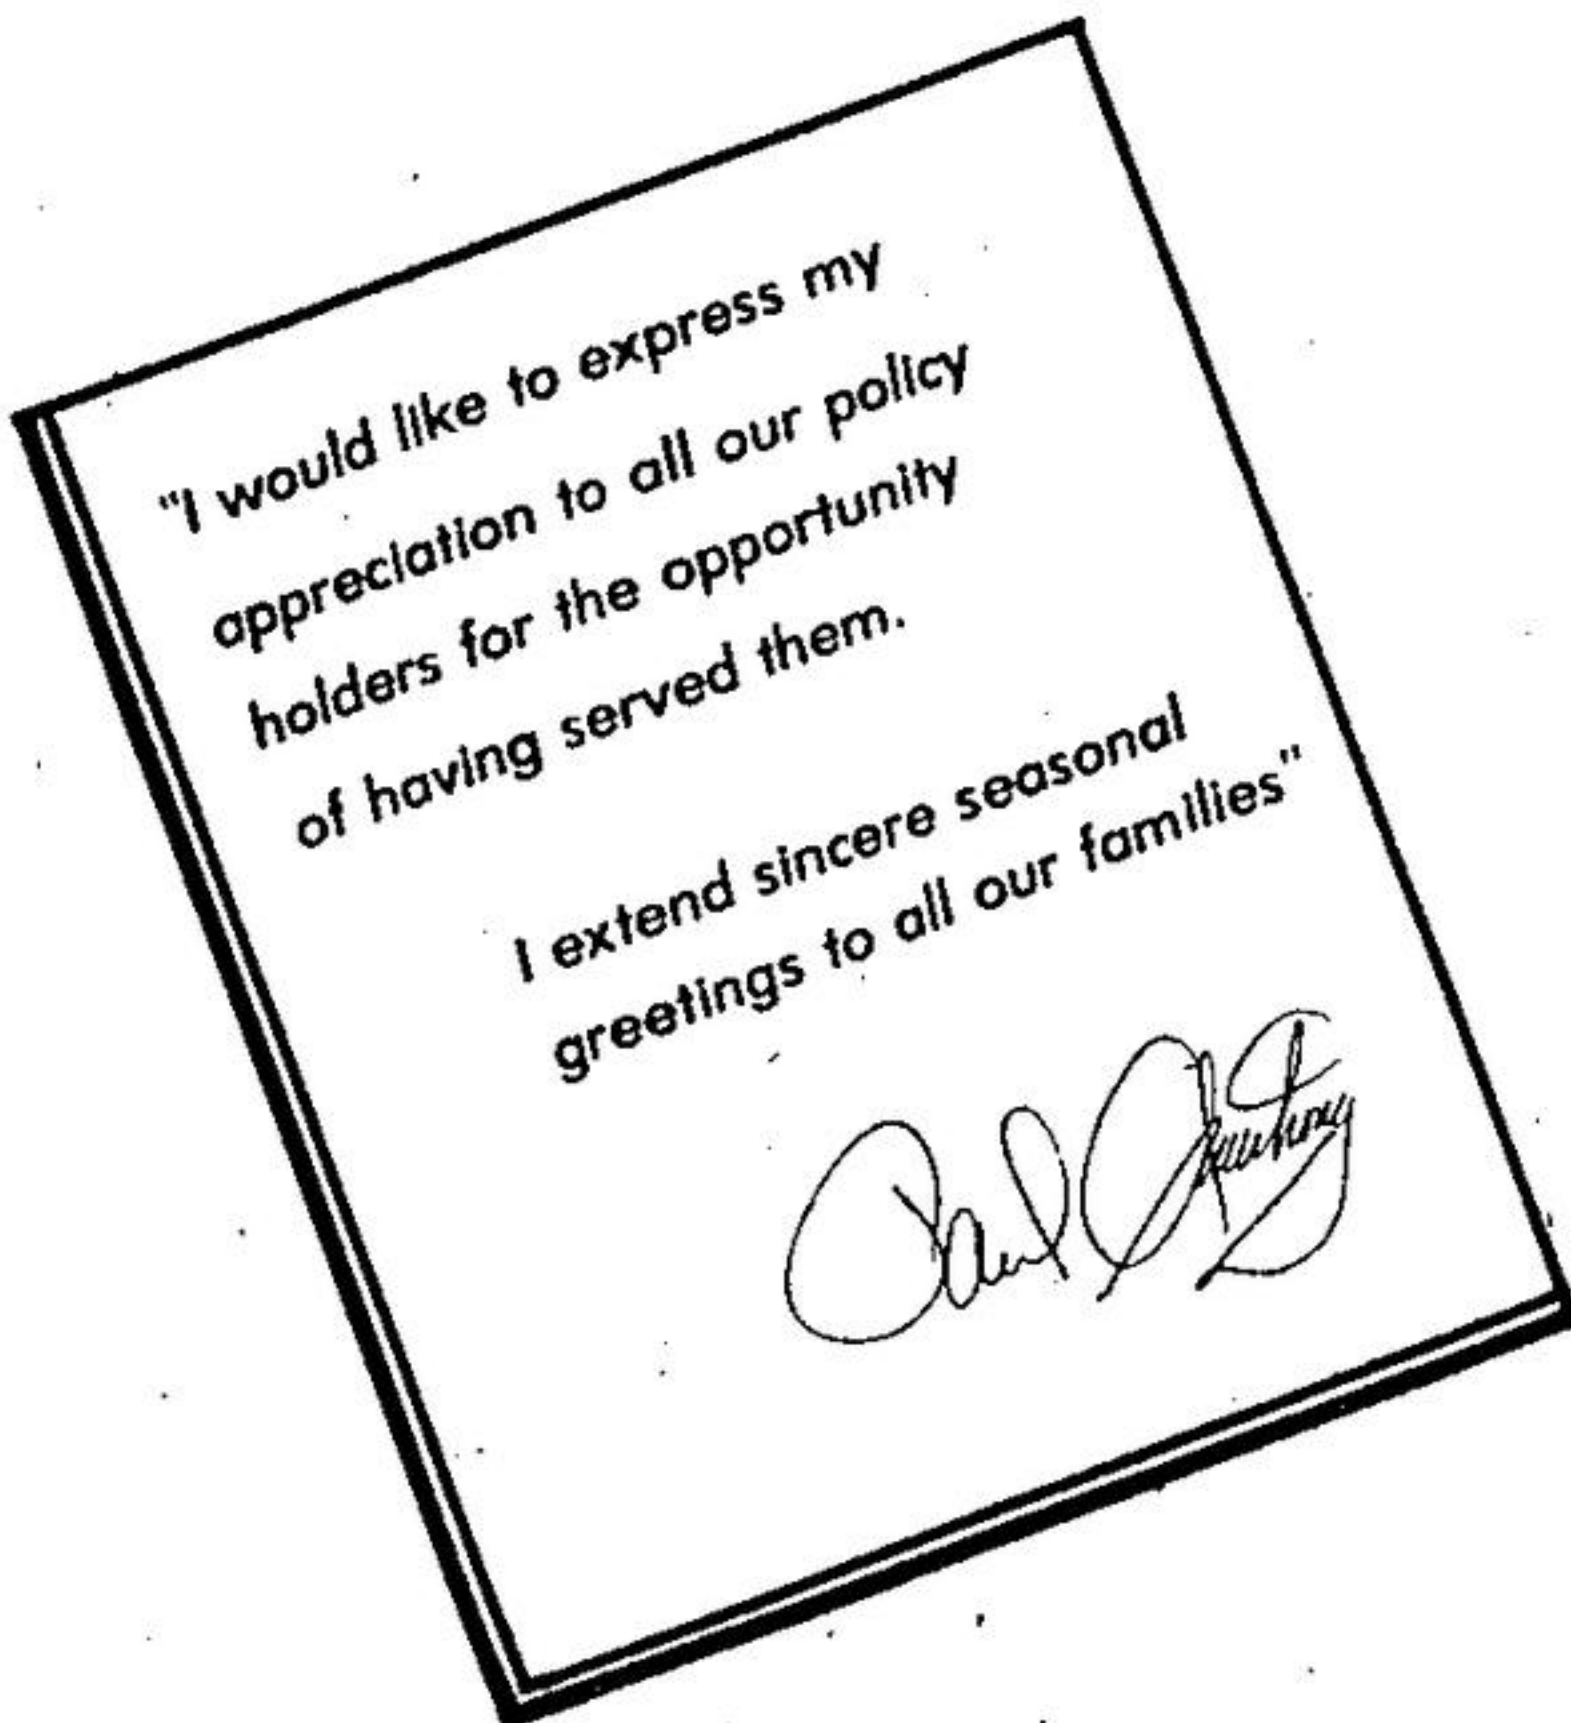 "I would like to express my
appreciation to all our policy
holders for the opportunity
of having served them.
I extend sincere seasonal
greetings to all our families"
Paul